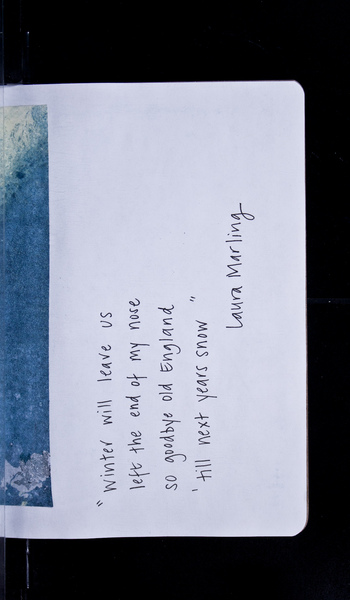 "Winter will leave us
left the end of my nose
so goodbye old England
'till next years snow"
Laura Marling